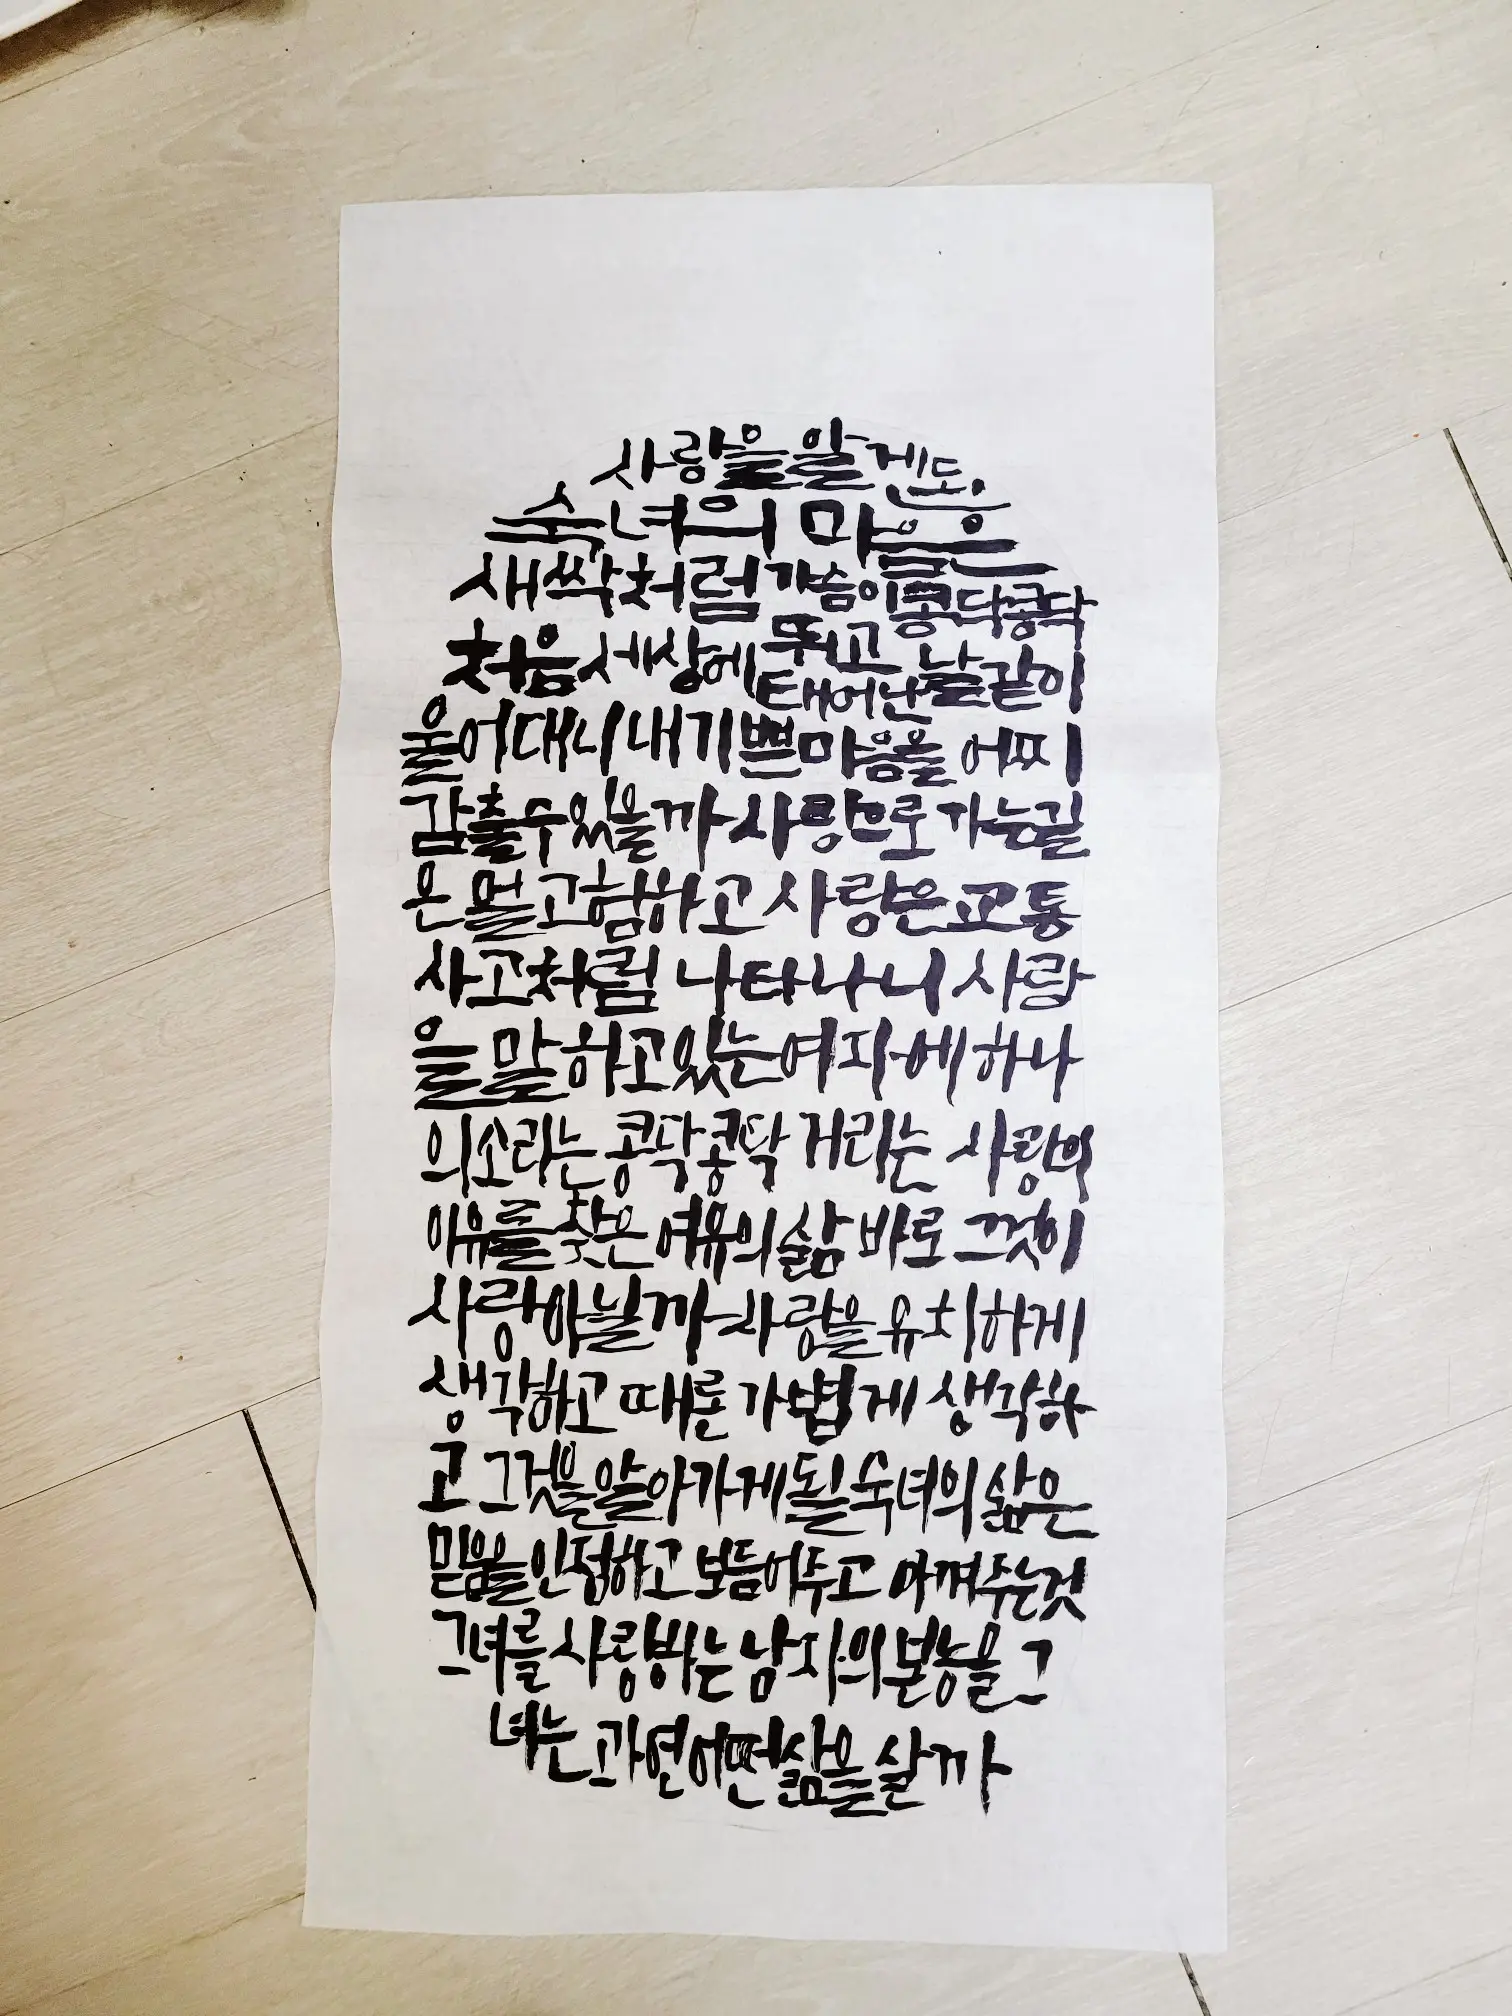 사랑을 알게 된
숙녀의 마음은
새싹처럼 가슴이 콩닥콩닥
뛰고
처음 세상에 태어난 날같이
울어대니 내 기쁜 마음을 어찌
감출 수 있을까 사랑으로 가는 길
은 멀고 험하고 사랑은 교통
사고처럼 나타나니 사랑
을 말하고 있는 여자에 하나
의 소리는 콩닥콩닥 거리는 사랑의
이유를 찾은 여유의 삶 바로 그것이
사랑아닐까 사랑을 유치하게
생각하고 때론 가볍게 생각하
고 그것을 알아가게 될 숙녀의 삶은
믿음을 인정하고 보듬어주고 아껴주는 것
그녀를 사랑하는 남자의 본능을 그
녀는 과연 어떤 삶을 살까